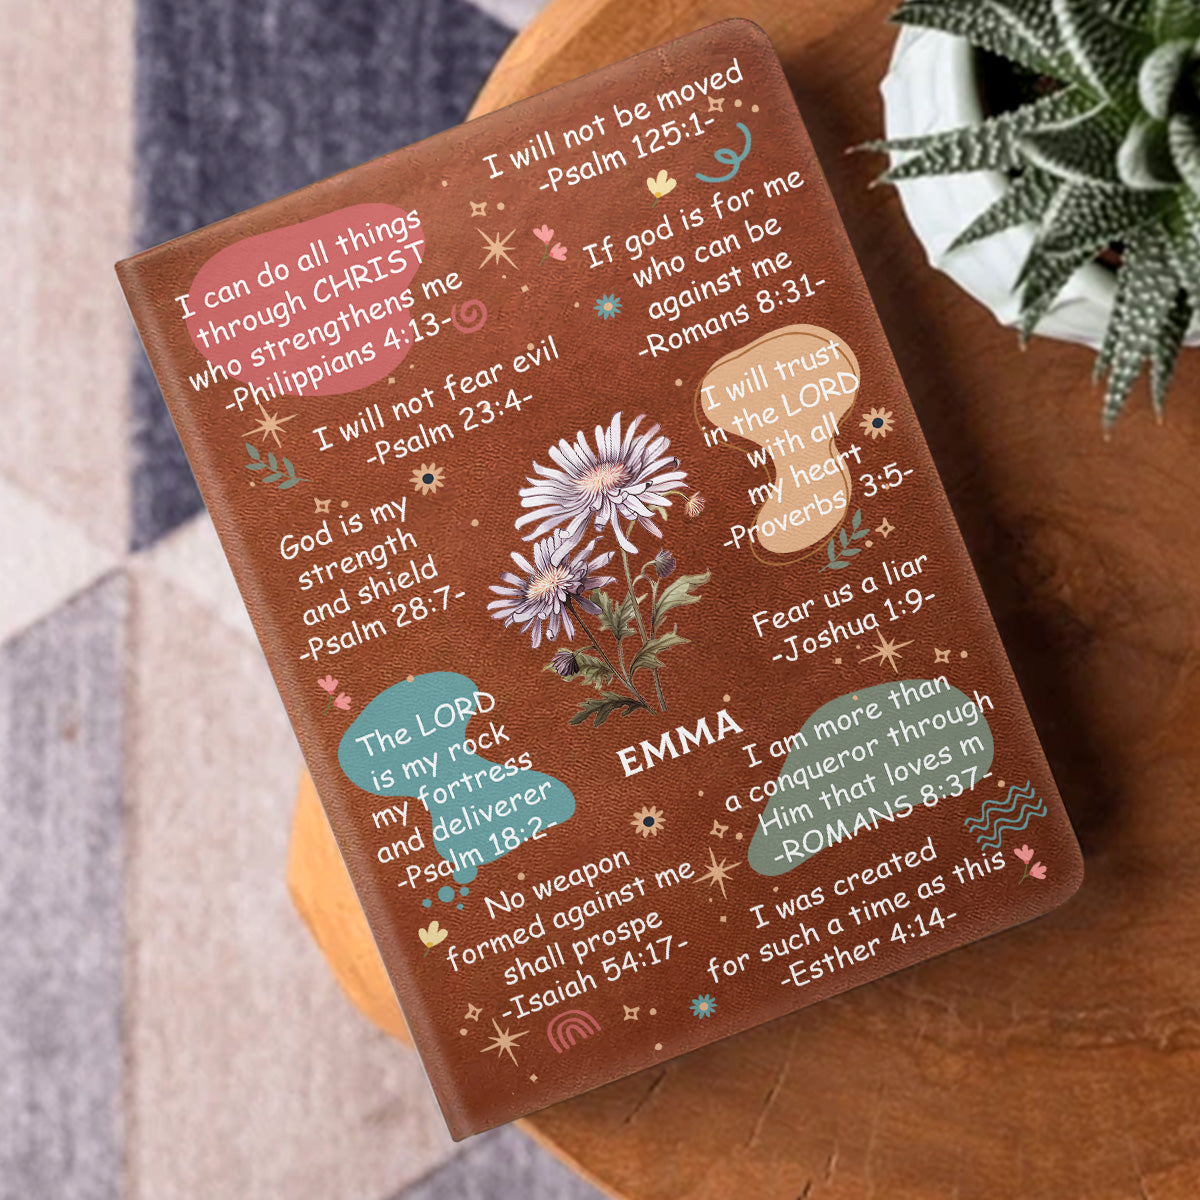 I will not be moved
-Psalm 125:1-
I can do all things
through CHRIST
who strengthens me
-Philippians 4:13-
If god is for me
who can be
against me
-Romans 8:31-
I will not fear evil
-Psalm 23:4-
I will trust
in the LORD
with all
my heart
-Proverbs 3:5-
God is my
strength
and shield
-Psalm 28:7-
Fear us a liar
-Joshua 1:9-
The LORD
is my rock
my fortress
and deliverer
-Psalm 18:2-
EMMA
I am more than
a conqueror through
Him that loves m
-ROMANS 8:37-
No weapon
formed against me
shall prospe
-Isaiah 54:17-
I was created
for such a time as this
-Esther 4:14-